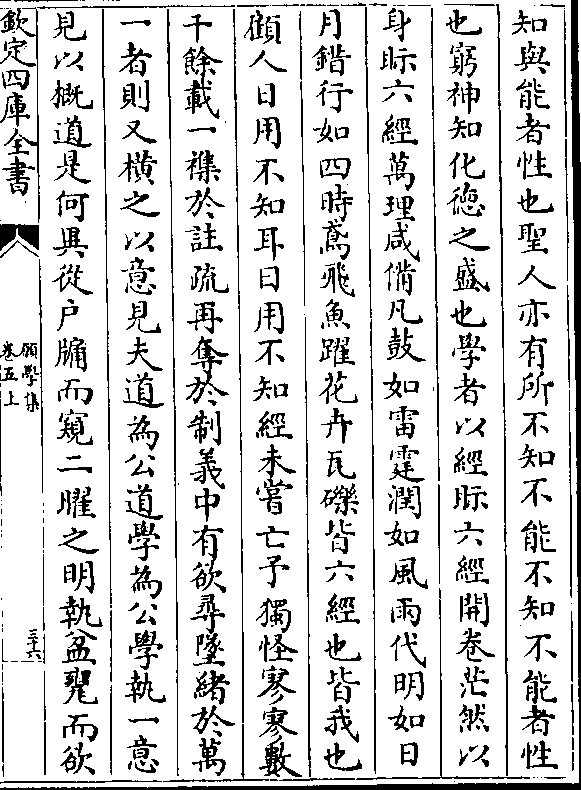 知與能者性也聖人亦有所不知不能不知不能者性
也窮神知化德之盛也學者以經眎六經開卷茫然以
身眎六經萬理咸備凡鼓如雷霆潤如風雨代明如日
月錯行如四時鳶飛魚躍花卉瓦礫皆六經也皆我也
顧人日用不知耳日用不知經未嘗亡予獨怪寥寥數
千餘載一襍於註疏再奪於制義中有欲尋墜緒於萬
一者則又橫之以意見夫道為公道學為公學執一意
見以概道是何異從戶牖而窺二曜之明執盆甕而欲
欽定四庫全書
願學集
卷五上
三十六